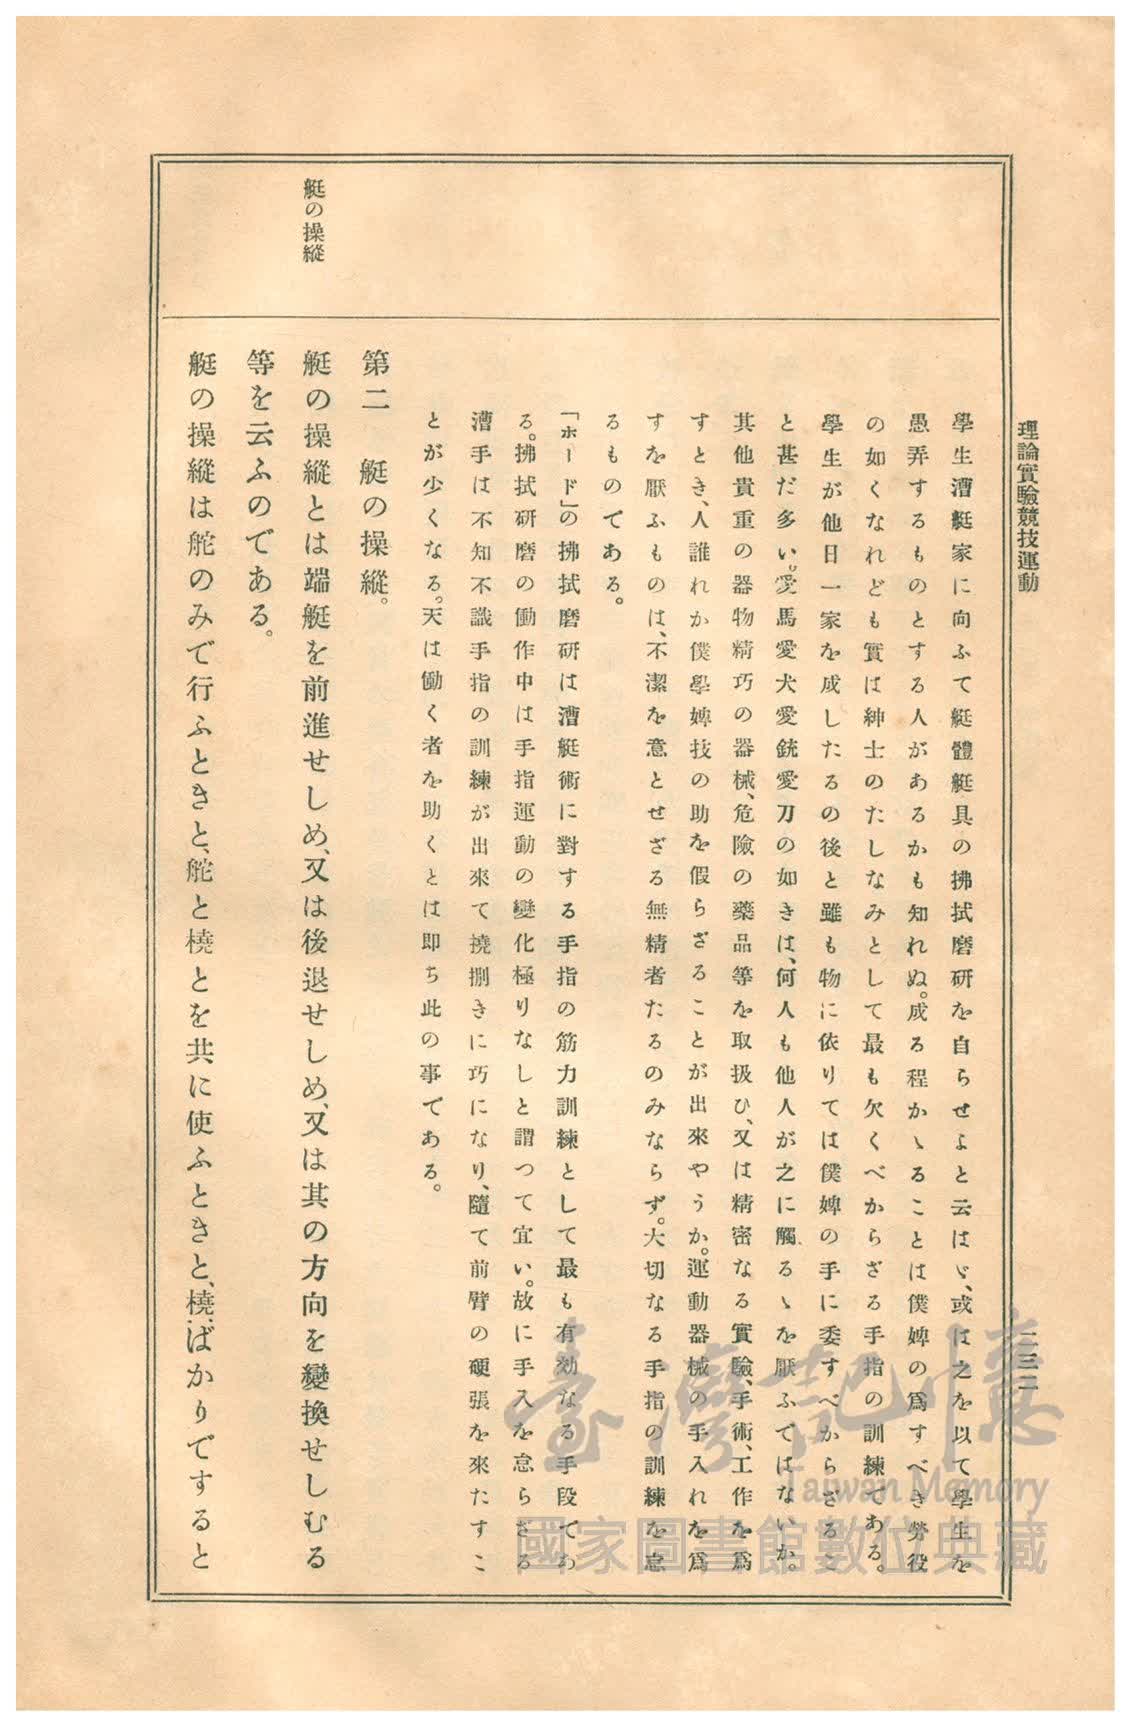 理論實驗競技運動
二三二
學生漕艇家に向ふて艇體艇具の拂拭磨研を自らせよと云はゞ、或は之を以て學生を
愚弄するものとする人があるかも知れぬ。成る程かゝることは僕婢の爲すべき勞役
の如くなれども實は紳士のたしなみとして最も欠くべからざる手指の訓練である。
學生が他日一家を成したるの後と雖も物に依りては僕婢の手に委すべからざるこ
と甚だ多い。愛馬愛犬愛銃愛刀の如きは、何人も他人が之に觸るゝを厭ふではないか。
其他貴重の器物精巧の器械、危險の藥品等を取扱ひ、又は精密なる實驗、手術、工作を爲
すとき、人誰れか僕學婢技の助を假らざることが出來やうか。運動器械の手入れを爲
すを厭ふものは、不潔を意とせざる無精者たるのみならず。大切なる手指の訓練を怠
るものである。
「ボード」の拂拭磨研は漕艇術に對する手指の筋力訓練として最も有効なる手段であ
る。拂拭研磨の働作中は手指運動の變化極りなしと謂つて宜い。故に手入を怠らざる
漕手は不知不識手指の訓練が出來て撓捌きに巧になり、隨て前臂の硬張を來たすこ
とが少くなる。天は働く者を助くとは即ち此の事である。
第二　艇の操縱。
艇の操縱
艇の操縱とは端艇を前進せしめ、又は後退せしめ、又は其の方向を變換せしむる
等を云ふのである。
艇の操縱は舵のみで行ふときと、舵と橈とを共に使ふときと、橈ばかりですると
臺灣記憶
Taiwan Memory
國家圖書館數位典藏